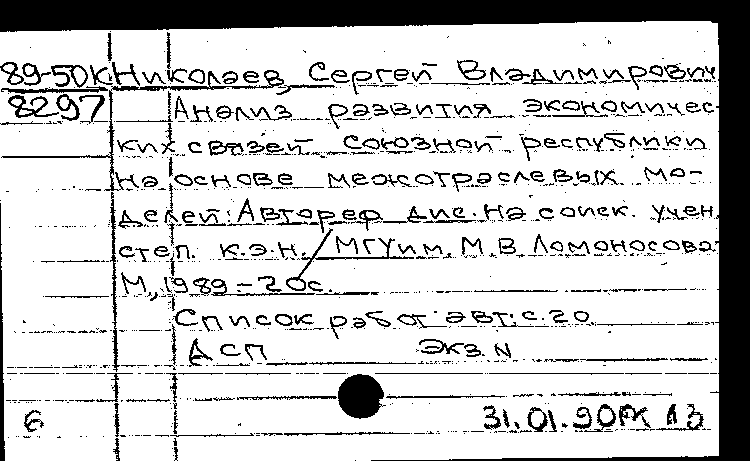 89-50К Николаев, Сергей Владимирович
8297 Анализ развития экономичес-
ких связей союзной республики
на основе межотраслевых мо-
делей: Автореф дис. на соиск. учен.
степ. к.э.н. / МГУ им. М.В. Ломоносова.
М., 1989 - 20с.
Список работ авт.: с. 20
ДСП Экз. N
6 31.01.90